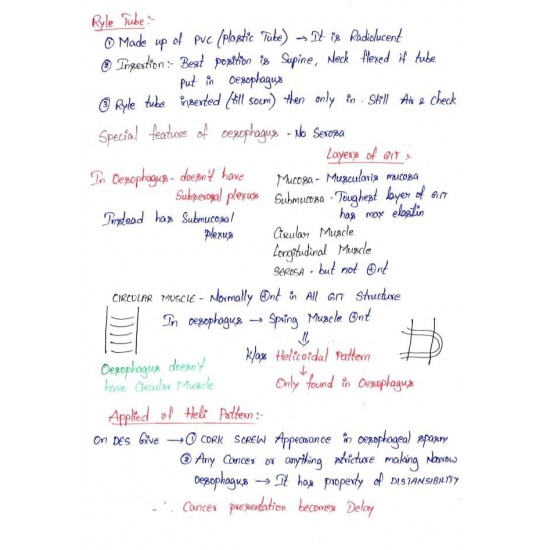 Ryle Tube :-
① Made up of PVC (plastic Tube) → It is Radiolucent
② Insertion :- Best position is Supine, Neck flexed if tube
put in Oesophagus
③ Ryle tube inserted (till 50cm) then only in. Still Air & check
Special feature of oesophagus - No Serosa
Layers of GIT :
In Oesophagus - doesn't have
Subserosal plexus
Instead has Submucosal
Plexus
Mucosa - Muscularis mucosa
Submucosa - Toughest layer of GIT
has max elastin
Circular Muscle
Longitudinal Muscle
SEROSA - but not ⊕nt
CIRCULAR MUSCLE - Normally ⊕nt in All GIT Structure
In oesophagus → Spring Muscle ⊕nt
⇓
k/as Helicoidal Pattern
↓
Only found in Oesophagus
Oesophagus doesn't
have Circular Muscle
Applied of Heli Pattern:-
On DES Give → ① CORK SCREW Appearance in oesophageal spasm
② Any Cancer or anything stricture making Narrow
Oesophagus → It has property of DISTANSIBILITY
∴ Cancer presentation becomes Delay